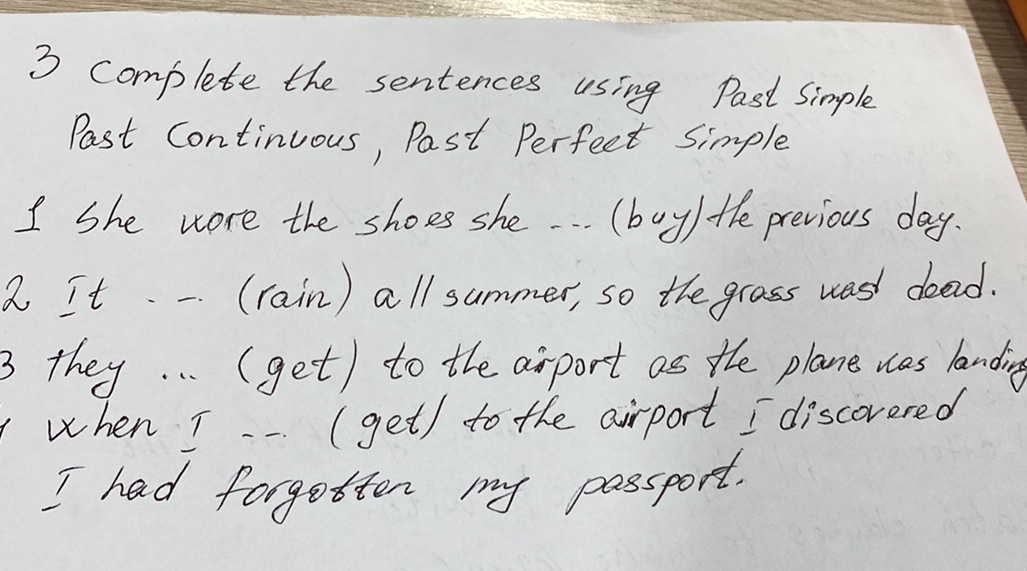 3 Complete the sentences using Past Simple
Past Continuous, Past Perfect Simple
1 She wore the shoes she ... (buy) the previous day.
2 It ... (rain) all summer, so the grass was dead.
3 they ... (get) to the airport as the plane was landing
when I ... (get) to the airport I discovered
I had forgotten my passport.